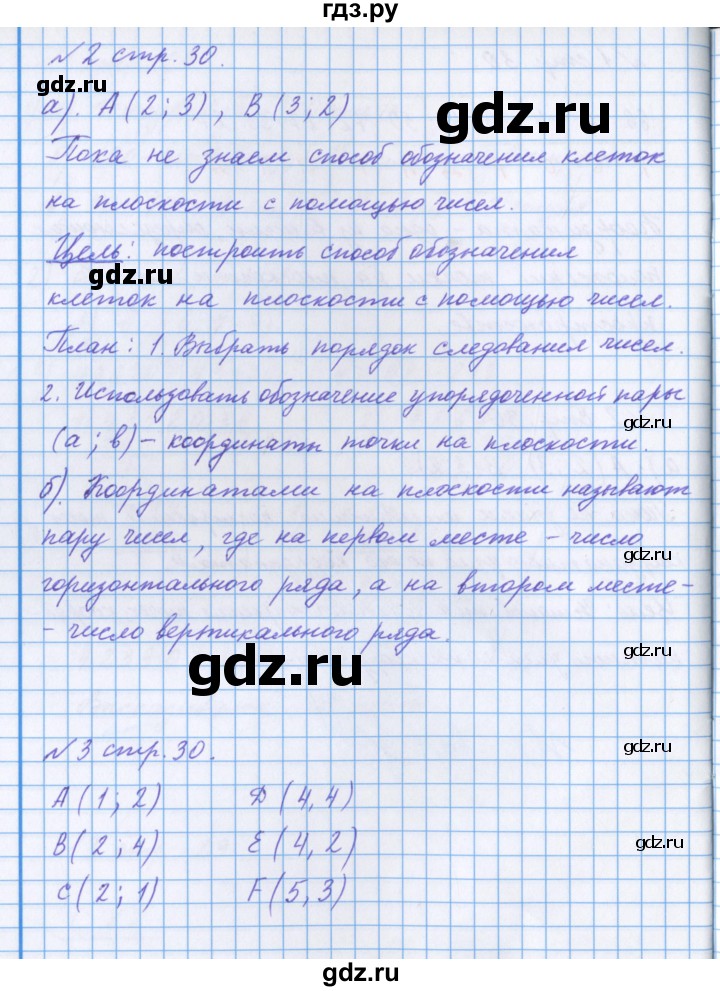 гдз.ру
№2 стр. 30.
gdz.ru
а). А (2; 3), В (3; 2)
gdz.ru
Пока не знаем способ обозначения клеток
на плоскости с помощью чисел.
Цель: построить способ обозначения
gdz.ru
клеток на плоскости с помощью чисел.
План: 1. Выбрать порядок следования чисел.
2. Использовать обозначение упорядоченной пары
gdz.ru
(а; в) – координаты точки на плоскости.
б). Координатами на плоскости называют
пару чисел, где на первом месте – число
gdz.ru
горизонтального ряда, а на втором месте –
- число вертикального ряда.
gdz.ru
gdz.ru
№3 стр. 30.
gdz.ru
А (1; 2) D (4, 4)
В (2; 4) Е (4, 2)
gdz.ru
С (2; 1) F (5, 3)
gdz.ru